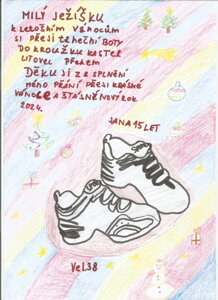 MILÝ JEŽÍŠKU
K LETOŠNÍM VÁNOCŮM
SI PŘEJI TANEČNÍ BOTY
DO KROUŽKU KASTER
LITOVEL PŘEDEM
DĚKUJI ZA SPLNĚNÍ
MÉHO PŘÁNÍ PŘEJI KRÁSNÉ
VÁNOCE A ŠŤASNĚ NOVÝ ROK
2024.
JANA 15 LET
Vel.38